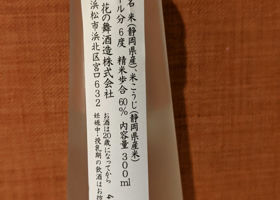 名 米(静岡県産)、米こうじ(静岡県産米)
ール分 6度 精米歩合 60% 内容量 300ml
花の舞酒造株式会社
浜松市浜北区宮口632
お酒は20歳になってから
妊娠中・授乳期の飲酒はお控